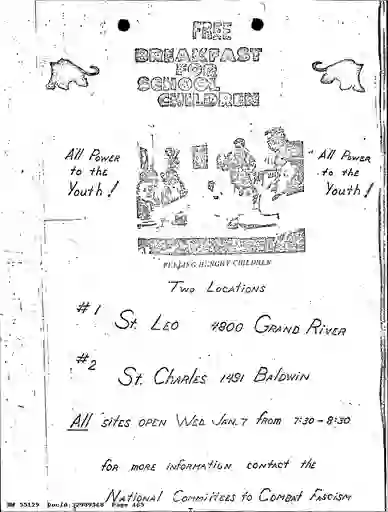 FREE
BREAKFAST
FOR
SCHOOL
CHILDREN
All Power
to the
Youth!
All Power
to the
Youth!
FEEDING HUNGRY CHILDREN
Two Locations
#1
St. Leo 4800 Grand River
#2
St. Charles 1491 Baldwin
All sites open Wed Jan. 7 from 7:30-8:30
for more information contact the
National Committees to Combat Fascism
HW 55129 DocId:32989368 Page 465